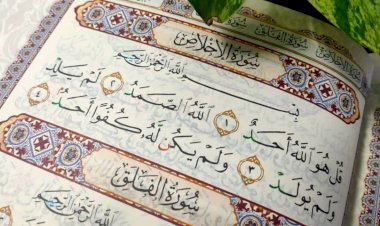 سُورَةُ الْإِخْلَاصِ
بِسْمِ اللَّهِ الرَّحْمَٰنِ الرَّحِيمِ
قُلْ هُوَ اللَّهُ أَحَدٌ ١ اللَّهُ الصَّمَدُ ٢ لَمْ يَلِدْ
وَلَمْ يُولَدْ ٣ وَلَمْ يَكُن لَّهُ كُفُوًا أَحَدٌ ٤
سُورَةُ الْفَلَقِ
بِسْمِ اللَّهِ الرَّحْمَٰنِ الرَّحِيمِ